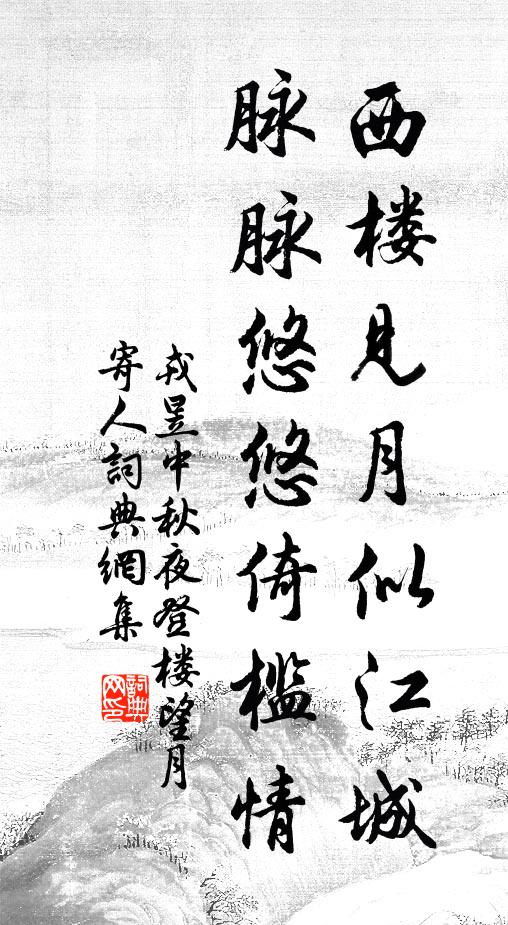 西楼见月似江城
脉脉悠悠倚槛情
戎昱中秋夜登楼望月
寄人词典網集
詞典网印